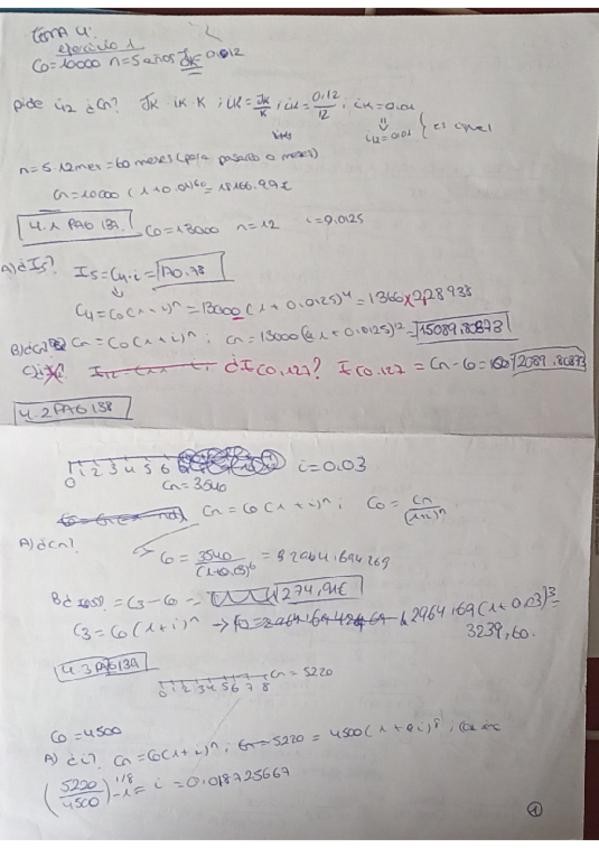 tema 4.
ejercicio 1
C0=10000 n=5 años Jk=0.012
pide i12 ¿Cn? Jk ik·k ; ik=Jk/k ; ik=0.12/12 ; ik=0.01
i12=0.01 } es igual
n=5·12mes=60 meses (para pasarlo a meses)
Cn=10000 (1+0.01)60=18166.99€
4.1 PAG 137. C0=13000 n=12 i=0.0125
A) ¿I5? I5=C4·i=170.78
C4=C0(1+i)n=13000(1+0.0125)4=1366
B) ¿Cn? Cn=C0(1+i)n ; Cn=13000(1+0.0125)12=15089.80873
¿I(0,12)? I(0,12)=Cn-C0=2089.80873
4.2 PAG 138
0 1 2 3 4 5 6 i=0.03
Cn=3540
Cn=C0(1+i)n ; C0=Cn/(1+i)n
A) ¿Cn?
C0=3540/(1+0.03)6=
B) =C3-C0= 274,91€
C3=C0(1+i)n → 2964,69(1+0.03)3=
3239,60.
4.3 PAG 139
0 1 2 3 4 5 6 7 8 Cn=5220
C0=4500
A) ¿i? Cn=C0(1+i)n ; 5220=4500(1+i)8 ;
(5220/4500)1/8-1= i=0.018725667
1